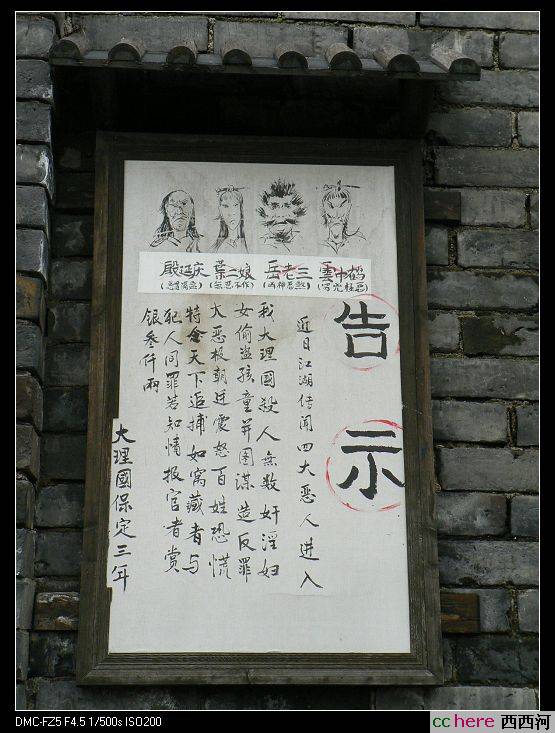 殷延庆 葉二娘 岳老三 雲中鹤
(无恶不作) (凶神恶煞)
告示
近日江湖传闻四大恶人进入
我大理國殺人無数奸淫妇
女偷盗孩童并圖谋造反罪
大恶极朝廷震怒百姓恐慌
特令天下追捕如窝藏者与
犯人同罪若知情报官者赏
银叁仟兩
大理國保定三年
DMC-FZ5 F4.5 1/500s ISO200
cchere 西西河